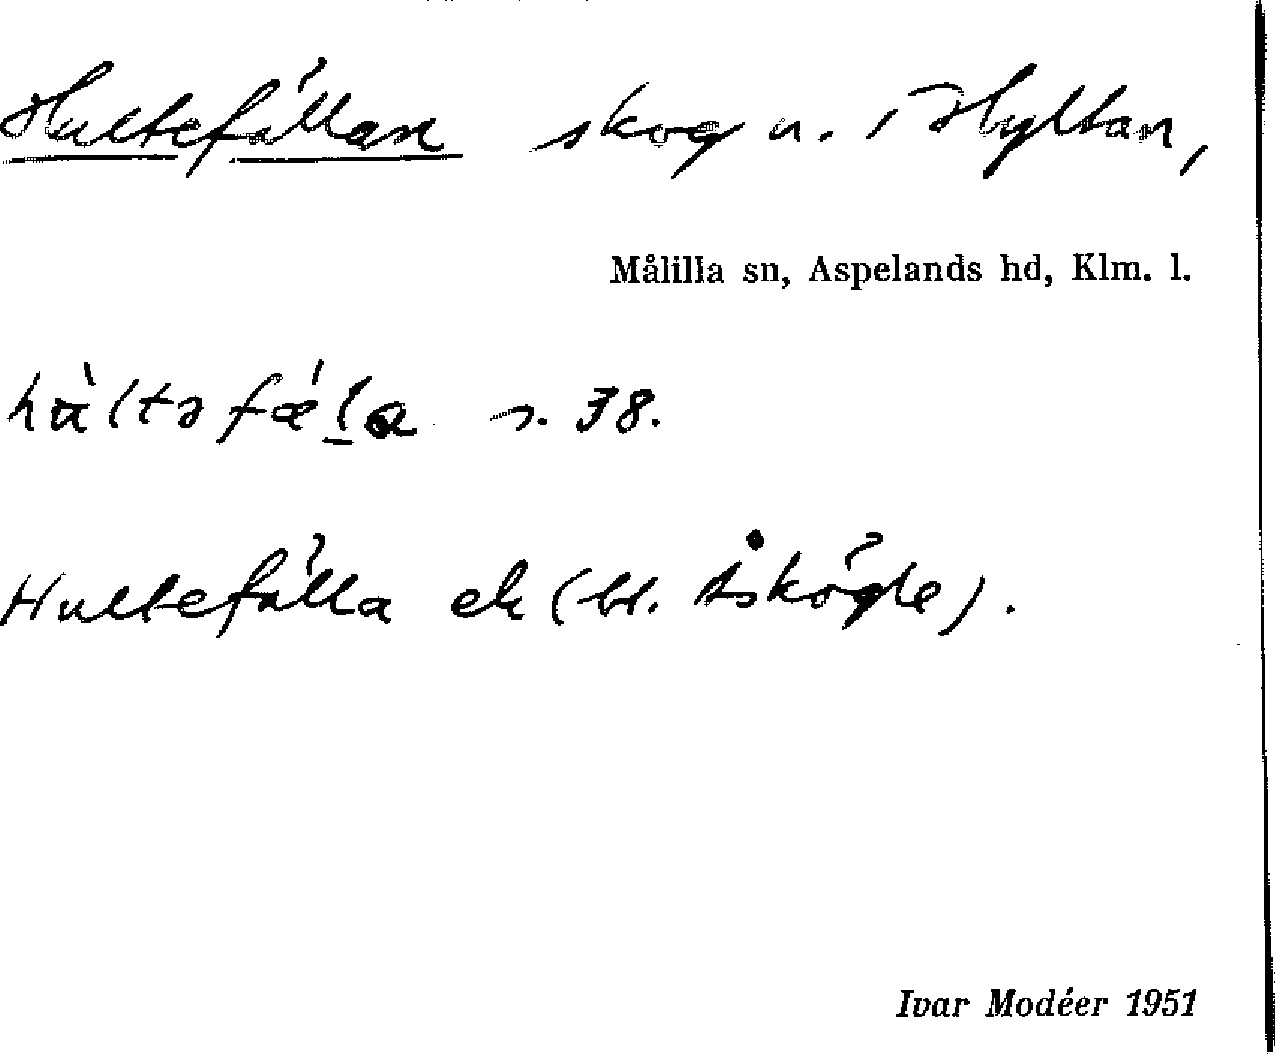 Hultefällan skog n. i Hyltan,
Målilla sn, Aspelands hd, Klm. l.
hùltəfǽḷa s. 38.
Hultefälla ek (bl. Åskögle).
Ivar Modéer 1951